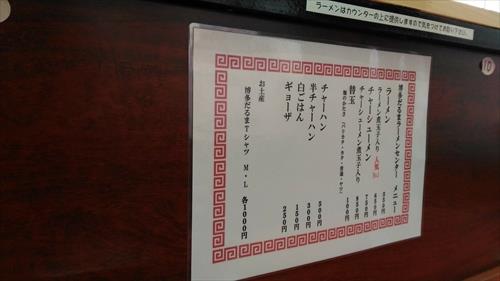 ラーメンはカウンターの上に提供しますので気をつけてお取り下さい。
10
博多だるまラーメンセンター メニュー
ラーメン 550円
ラーメン煮玉子入り 人気No.1 650円
チャーシューメン 750円
チャーシューメン煮玉子入り 850円
替玉 100円
麺のかたさ （バリカタ・カタ・普通・ヤワ）
チャーハン 500円
半チャーハン 300円
白ごはん 150円
ギョーザ 250円
お土産
博多だるまTシャツ M・L 各1000円